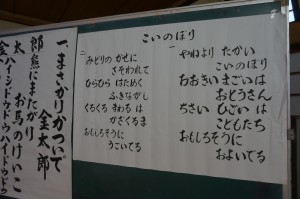 こいのぼり
やねより たかい
こいのぼり
おおきい まごいは
おとうさん
ちさい ひごいは
こどもたち
おもしろそうに
およいでる
みどりの かぜに
さそわれて
ひらひら はためく
ふきながし
くるくる まわる は
かざぐるま
おもしろそうに
うごいてる
金太郎
一、まさかりかついで
金太郎
熊にまたがり
お馬のけいこ